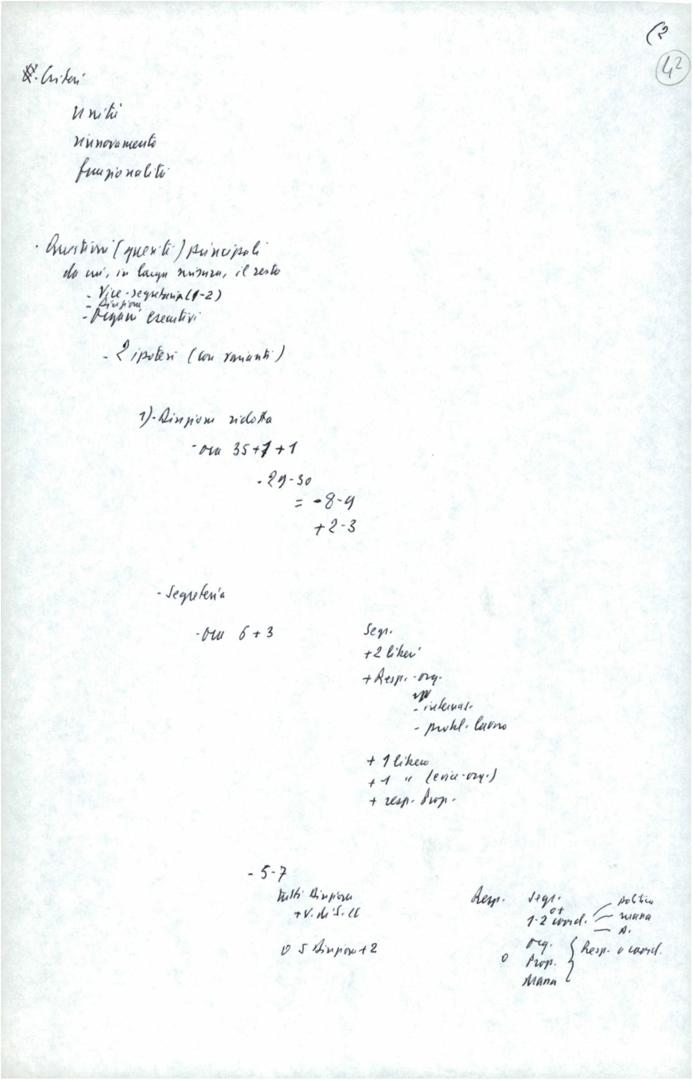 (2
42
Criteri
unità
rinnovamento
funzionalità
- Questioni (quesiti) principali
da cui, in larga misura, il resto
- Vice-segreteria (1-2)
- Direzione
- Organi esecutivi
- 2 ipotesi (con varianti)
1) - Direzione ridotta
- ora 35+1+1
- 29-30
= -8-9
+2-3
- Segreteria
- ora 6+3
Segr.
+2 liberi
+Resp. - org.
- internaz.
- probl. lavoro
+ 1 libero
+ 1 " (e vice-org.)
+ resp. Prop.
- 5-7
tutti Direzione
o 5 Direzione + 2
Resp. Segr.
1-2 coord.
politica
massa
org.
o Prop. Resp. o coord.
Massa